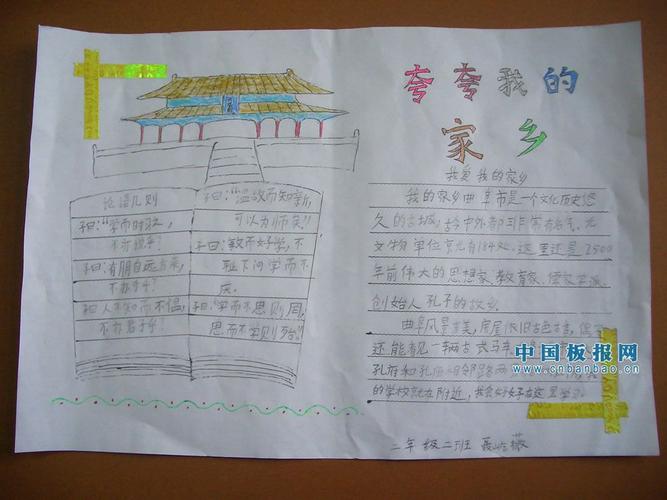 夸夸我的
家乡
我爱我的家乡
我的家乡曲阜市是一个文化历史悠
久的古城，古今中外都非常有名气。光
文物单位就有184处。这里还是2500
年前伟大的思想家、教育家、儒家学派
创始人孔子的故乡。
曲阜风景优美，房屋依旧古色古香，偶
还能看见一辆古式马车
孔府和孔庙相邻路两
的学校就在附近，我会好好在这里学习
二年级二班
论语几则
子曰："学而时习之，
不亦说乎？
子曰：有朋自远方来，
不亦乐乎？
子曰：人不知而不愠，
不亦君子乎？
子曰："温故而知新，
可以为师矣"
子曰：敏而好学，不
耻下问学而不
厌。
子曰："学而不思则罔，
思而不学则殆。"
中国板报网
www.cnbanbao.cn